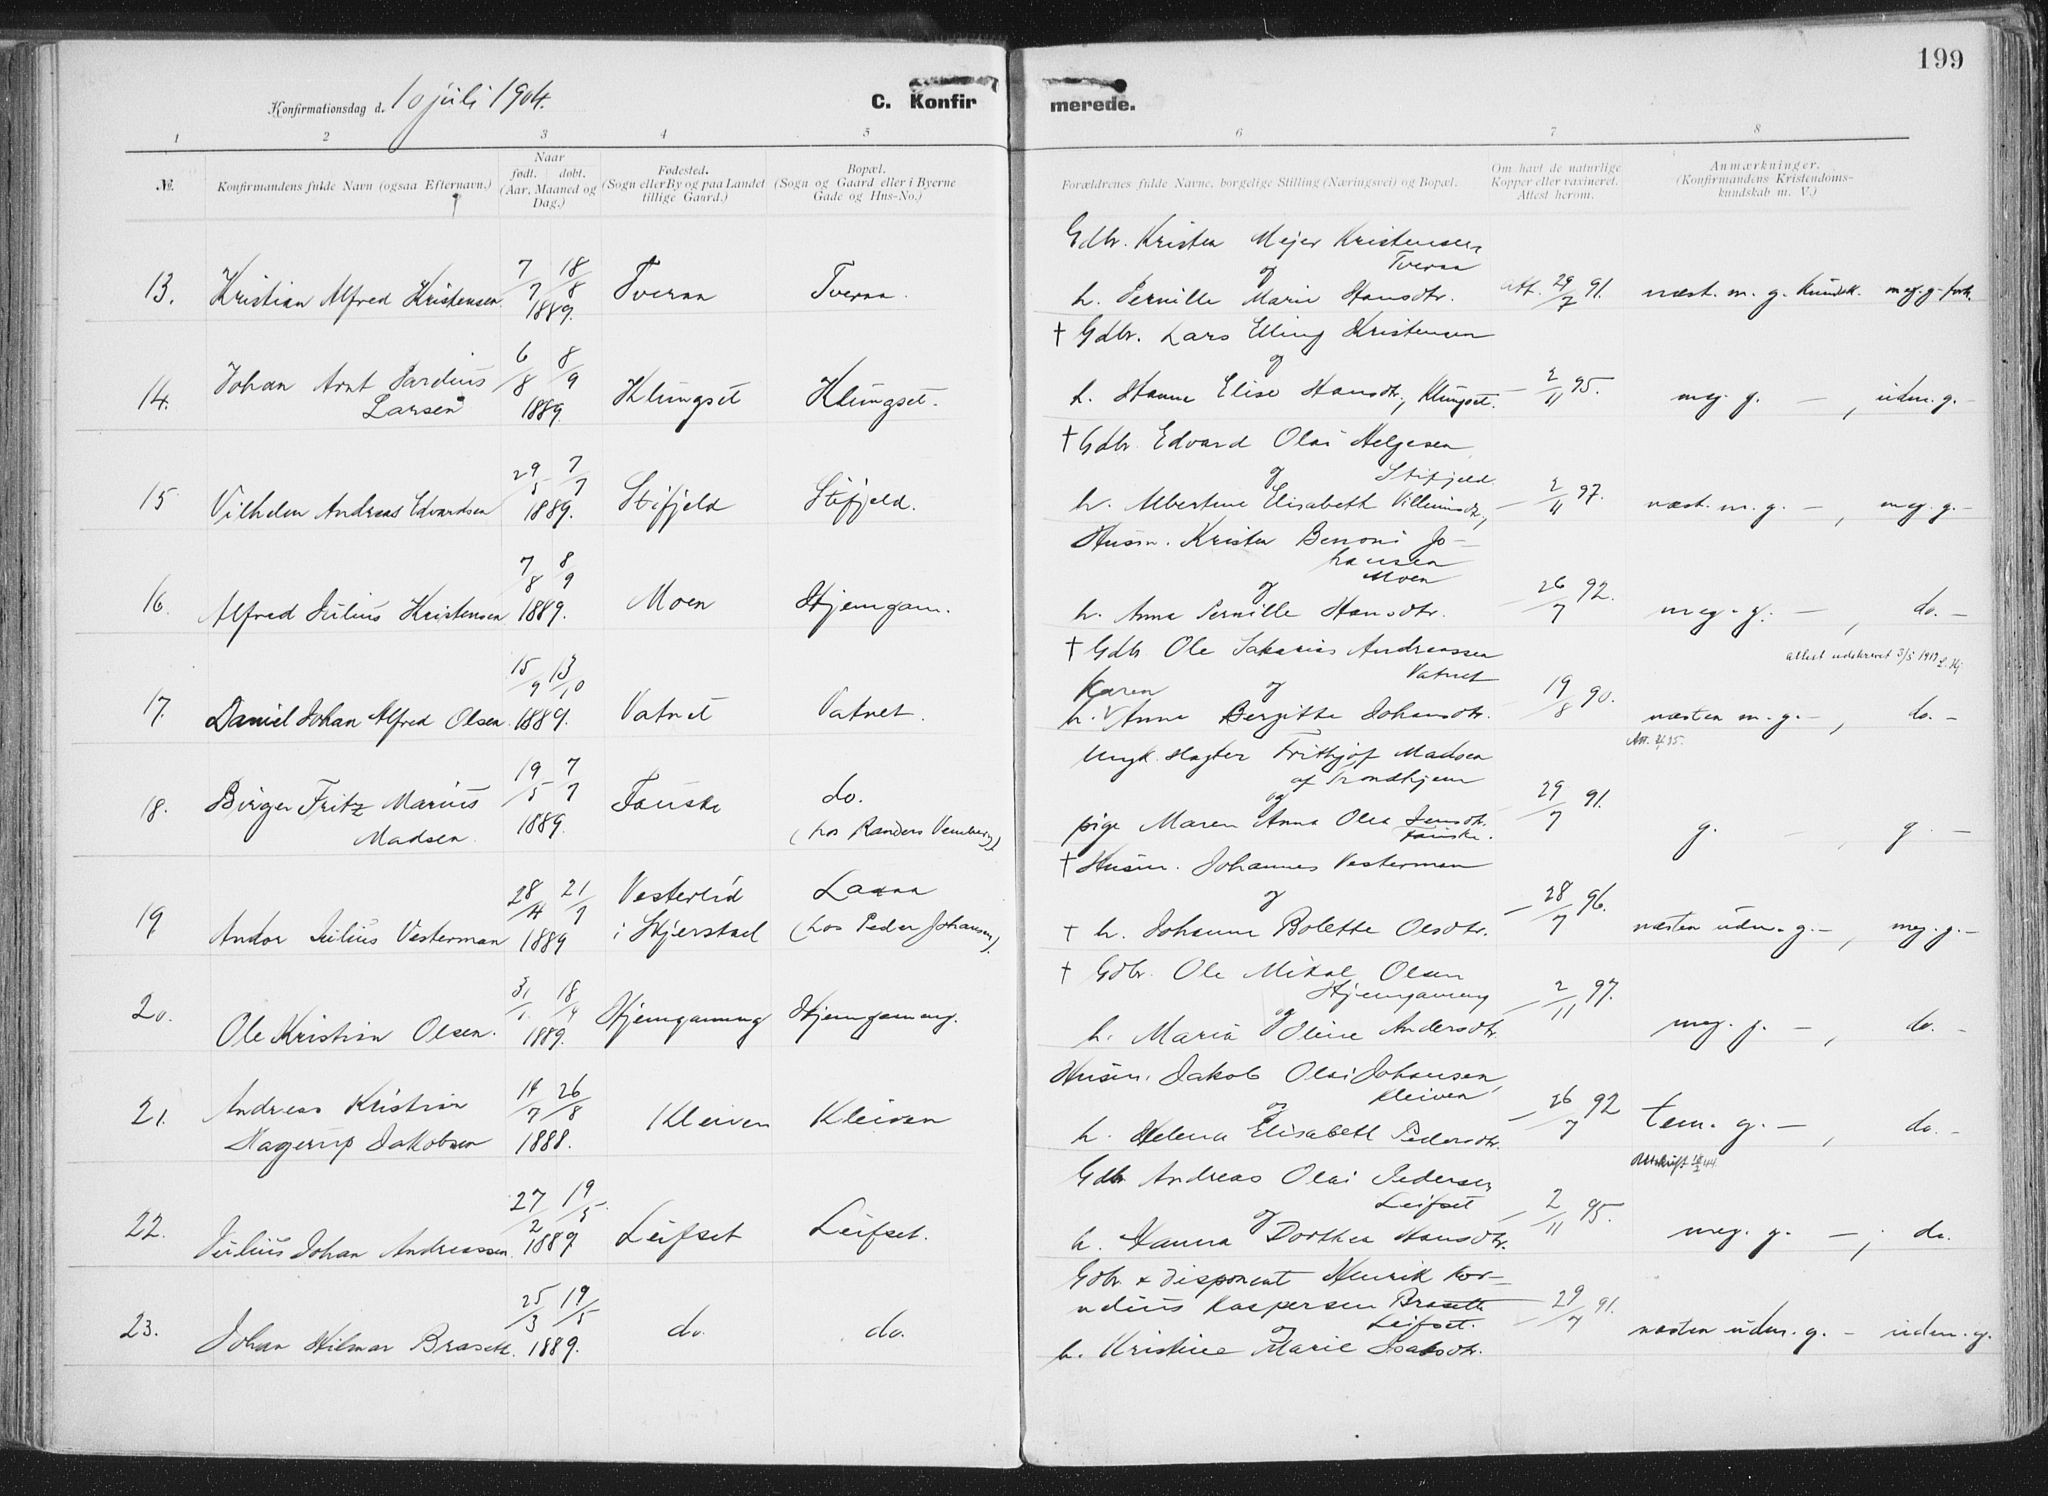 199
Konfirmationsdag d. 10 juli 1904.
C. Konfir merede.
1 2 3 4 5 6 7 8
№.
Konfirmandens fulde Navn (ogsaa Efternavn.)
Naar
født. døbt.
(Aar, Maaned og
Dag.)
Fødested.
(Sogn eller By og paa Landet
tillige Gaard.)
Bopæl.
(Sogn og Gaard eller i Byerne
Gade og Hus-No.)
Forældrenes fulde Navne, borgelige Stilling (Næringsvei) og Bopæl.
Om havt de naturlige
Kopper eller vaxineret.
Attest herom.
Anmærkninger.
(Konfirmandens Kristendoms-
kundskab m. V.)
Gdbr. Kristen Mejer Kristensen
Tveraa
og
13. Kristian Alfred Kristensen 7/7 18/8 1889. Tveraa Tveraa.
h. Pernille Marie Hansdtr. Att. 29/7 91. næst. m. g. Kundsk. meg. g. forh.
† Gdbr. Lars Elling Kristensen
og
14. Johan Arnt Pardius
Larsen 6/8 8/9 1889. Klungset Klungset.
h. Hanna Elise Hansdtr., Klungset. – 2/11 95. meg. g. –, udm. g. –
† Gdbr. Edvard Olai Helgesen
og Stifjeld
15 Vilhelm Andreas Edvardsen 29/5 7/7 1889. Stifjeld Stifjeld.
h. Albertine Elisabeth Villumsdtr., – 2/11 97. næst. m. g. –, meg. g. –
Husm. Kristen Benoni Jo-
hansen
Moen
og
16. Alfred Julius Kristensen 7/8 8/9 1889. Moen Hjemgam.
h. Anna Pernille Hansdtr. – 26/7 92. meg. g. –, do. –
† Gdbr. Ole Sakarias Andreassen
Vatnet
attest udskrevet 3/5 1919
Karen og
17. Daniel Johan Alfred Olsen 15/9 13/10 1889. Vatnet Vatnet.
h. Anna Bergitte Johansdtr. 19/8 90. næsten m. g. –, do. –
Ungk. Slagter Frithjof Madsen
af Trondhjem
og
18. Birger Fritz Marius
Madsen 19/5 7/7 1889. Fauske do.
(hos Randers Venberg).
pige Maren Anna Olea Jensdtr.
Fauske. – 29/7 91. g. –, g –
† Husm. Johannes Vesterman
og
19 Andor Julius Vesterman 28/4 21/7 1889 Vesterlid
i Skjerstad Laxaa
(hos Peder Johansen).
† h. Johanne Bolette Olsdtr. – 28/7 96. næsten udm. g. –, meg. g. –
† Gdbr. Ole Mikal Olsen
Hjemgameng
og
20. Ole Kristian Olsen. 31/1. 18/4 1889. Hjemgameng Hjemgameng.
h. Maria Oline Andersdtr. – 2/11 97. meg. g. –, do. –
Husm. Jakob Olai Johansen,
Kleiven
og
21. Andreas Kristian
Hagerup Jakobsen 14/7 26/8 1888. Kleiven Kleiven
h. Helena Elisabeth Pedersdtr. – 26/7 92 tem. g. –, do. –
Gdbr Andreas Olai Pedersen
Leifset
og
22. Julius Johan Andreassen 27/2 19/5 1889 Leifset Leifset.
h. Hanna Dorthea Hansdtr. – 2/11 95. meg. g. –, do.
Gdbr. & disponent Henrik Kor-
nelius Kaspersen Brasetk
Leifset.
og
23. Johan Hilmar Brasetk. 25/3 19/5 1889. do. do.
h. Kristine Marie Isaksdtr. – 29/7 91. næsten udm. g. – udm. g.